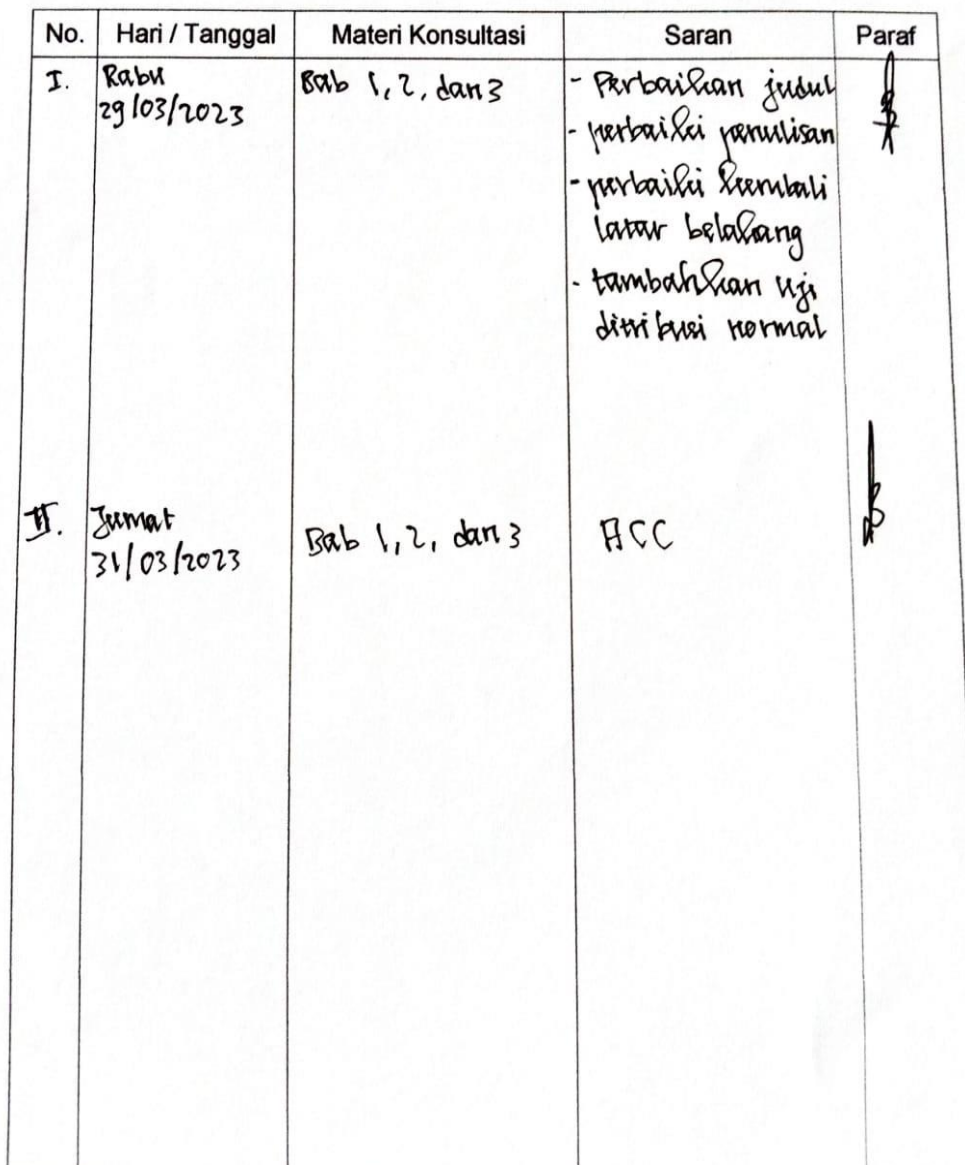 No. Hari / Tanggal Materi Konsultasi Saran Paraf
I. Rabu Bab 1, 2, dan 3 - Perbaikan judul
29/03/2023 - perbaiki penulisan
- perbaiki kembali
latar belakang
- tambahkan uji
ditribusi normal
II. Jumat Bab 1, 2, dan 3 ACC
31/03/2023